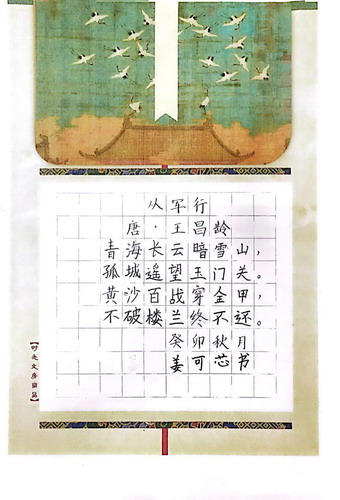 从军行
唐·王昌龄
青海长云暗雪山，
孤城遥望玉门关。
黄沙百战穿金甲，
不破楼兰终不还。
癸卯秋月
姜可芯书